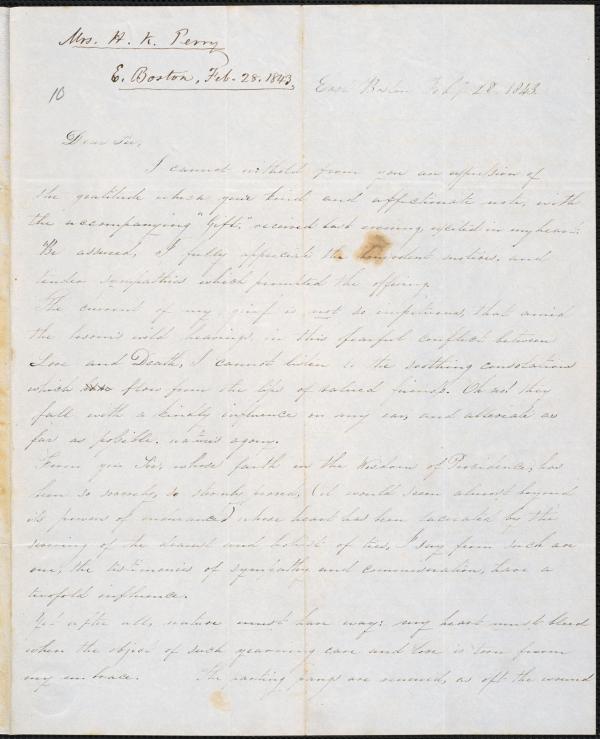 Mrs. H. K. Perry
E. Boston, Feb. 28. 1843,
10
East Boston Feby 28. 1843.
Dear Sir,
I cannot withold from you an expression of
the gratitude which your kind and affectionate note, with
the accompanying "Gift," received last evening, excited in my heart.
Be assured, I fully appreciate the benevolent motives, and
tender sympathies which prompted the offering.
The current of my grief is not so impetuous, that amid
the bosom's wild heavings, in this fearful conflict between
Love and Death, I cannot listen to the soothing consolations
which flow from the lips of valued friends. Oh no! they
fall with a kindly influence on my ear, and alleviate as
far as possible, nature's agony.
From you Sir, whose faith in the Wisdom of Providence, has
been so severely, so strongly proved, (it would seem almost beyond
its powers of endurance) whose heart has been lacerated by the
severing of the dearest and holiest of ties, I say from such an
one, the testimonies of sympathy and commiseration, have a
twofold influence.
Yet after all, nature must have way: my heart must bleed
when the object of such yearning care and love is torn from
my embrace. The parting pangs are renewed, as oft the wound